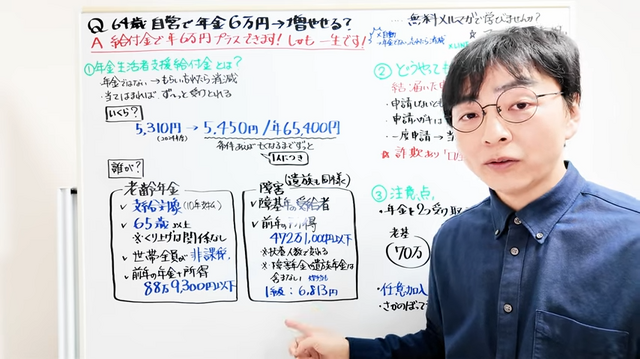 Q 64歳 自営で年金6万円→増やせる?
A 給付金で年6万円プラスできます! しかも一生です!
無料メルマガで学びませんか?
①年金生活者支援給付金とは?
年金ではない→もらい忘れたら消滅
・当てはまれば ずーっと受けとれる
いくら?
5,310円→5,450円/年65,400円
条件あればもくなるまでずっと
1人につき
誰が?
老齢年金
✓ 支給対象(10年納付)
✓ 65歳以上
※くり上げは関係なし
✓ 世帯全員が非課税
✓ 前年の年金+所得
88万9,300円以下
障害(遺族も同様)
✓ 障基年の受給者
✓ 前年の所得
472万1,000円以下
※扶養人数で変わる
※障害年金・遺族年金は
含まない
1級:6,813円
② どうやって
・申請しないと
・申請ハガキは
・一度申請→
詐欺あり「口
③ 注意点
・年金を2つ受け取
老基
70万
・任意加入
さかのぼって